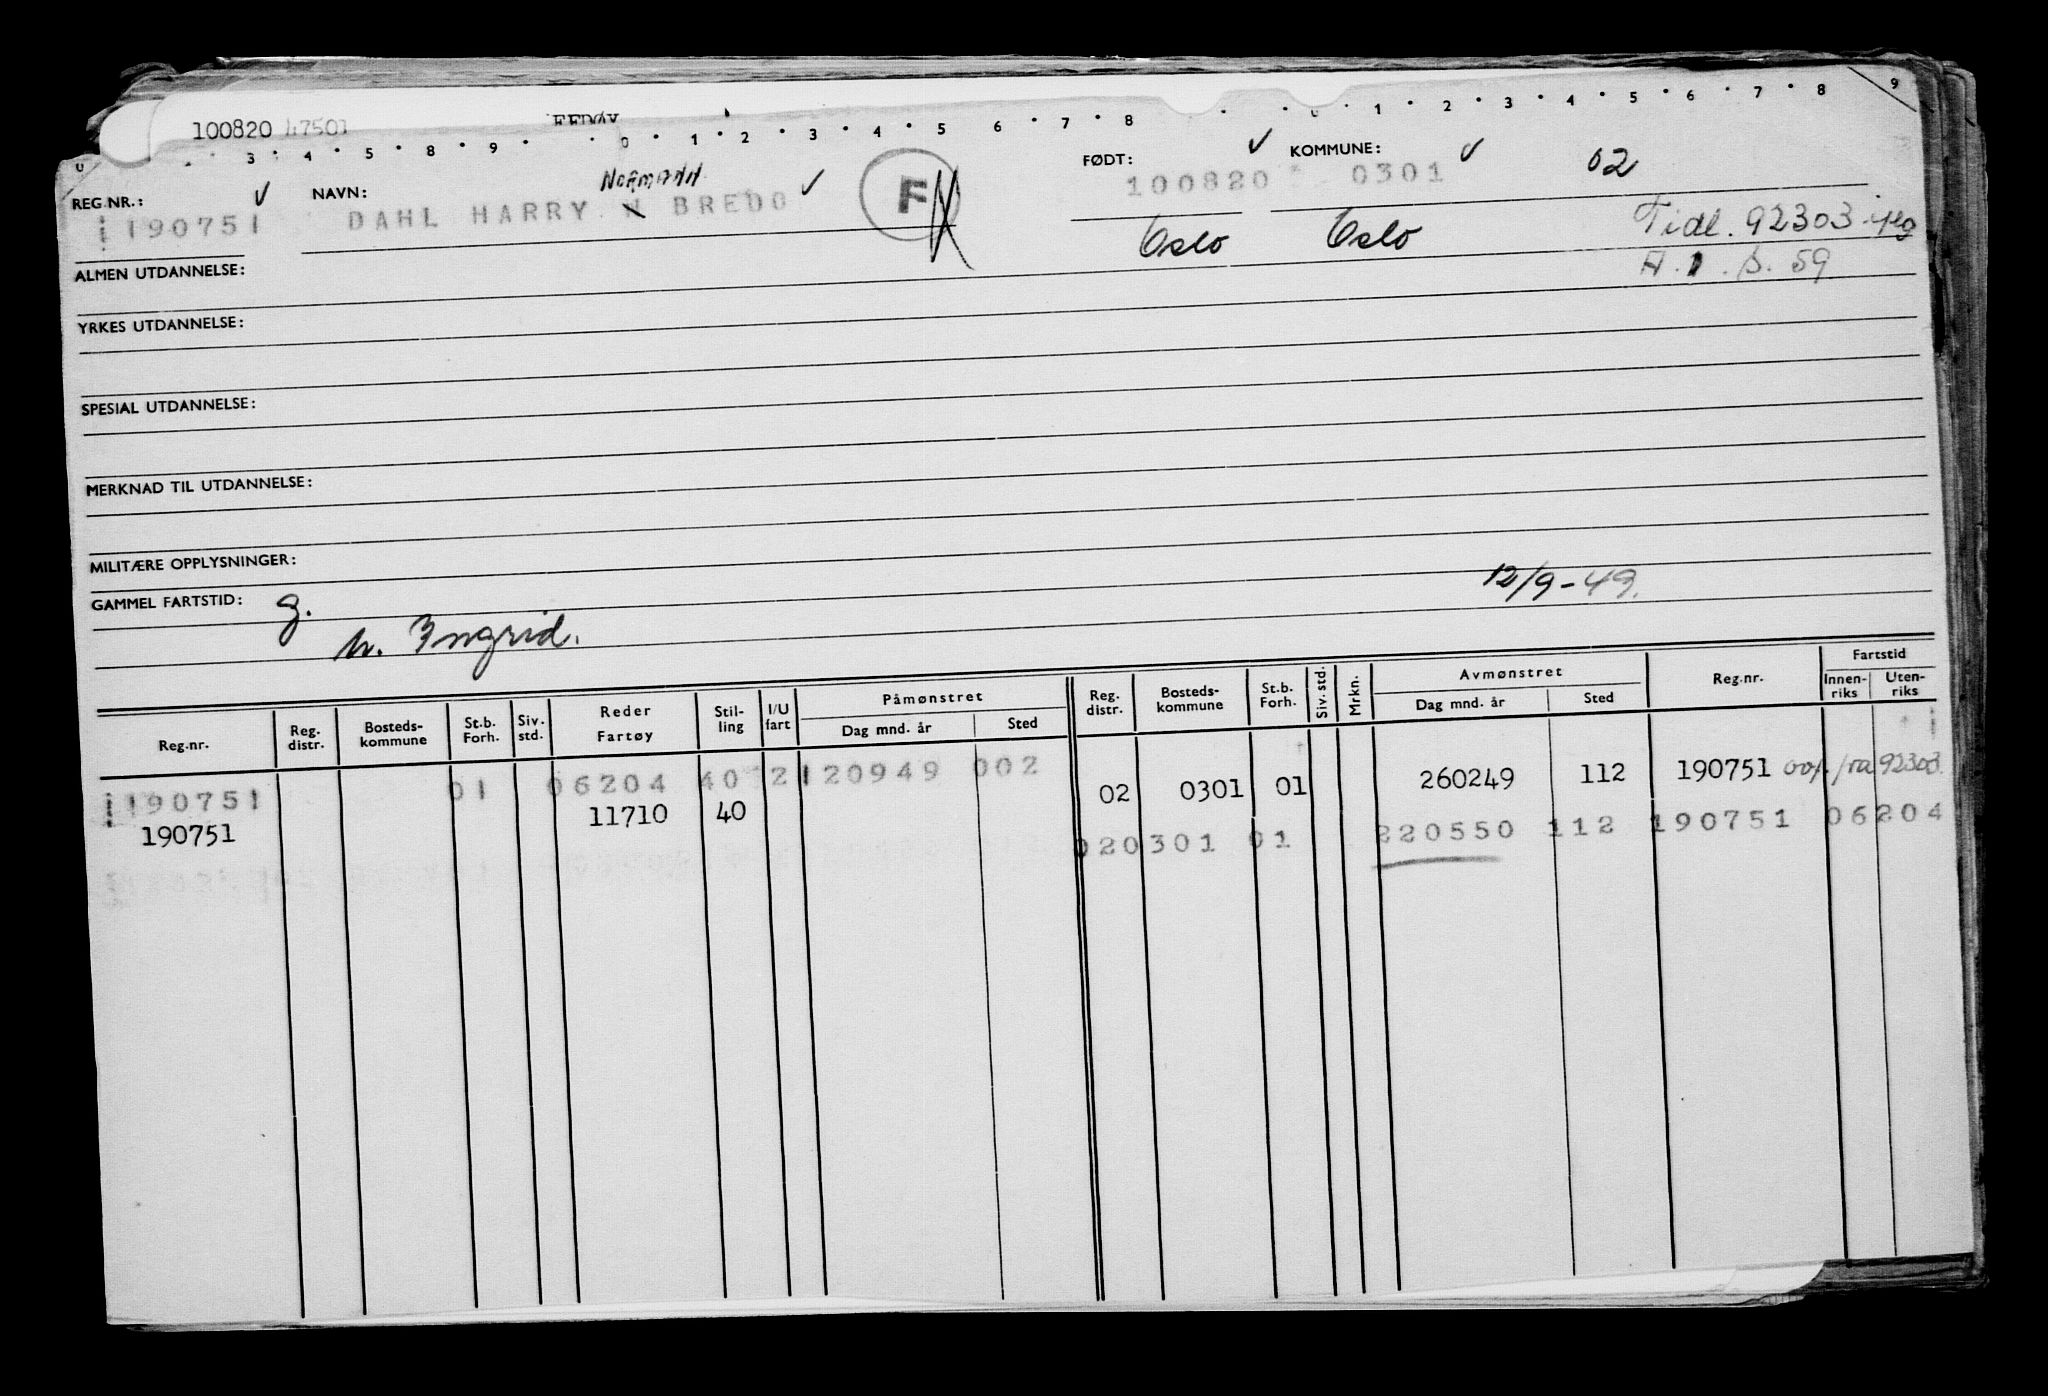 100820 47501
0 1 2 3 4 5 6 7 8 9
0 3 4 5 8 9 0 1 2 3 4 5 6 7 8
REG.NR.: 190751
NAVN: DAHL HARRY N BREDO
NORMANN
F
FØDT: 100820
KOMMUNE: 0301
02
Oslo Oslo
Tidl. 92303
A. 1. S. 59
ALMEN UTDANNELSE:
YRKES UTDANNELSE:
SPESIAL UTDANNELSE:
MERKNAD TIL UTDANNELSE:
MILITÆRE OPPLYSNINGER:
GAMMEL FARTSTID: g. 12/9-49.
h. Ingrid.
Reg.nr. Reg. distr. Bosteds-kommune St.b. Forh. Siv. std. Reder Fartøy Stil-ling I/U fart Påmønstret Dag mnd. år Sted Reg. distr. Bosteds-kommune St.b. Forh. Siv. std. Mrkn. Avmønstret Dag mnd. år Sted Reg.nr. Fartstid Innen-riks Uten-riks
190751 01 06204 40 2 120949 002
02 0301 01 260249 112 190751 92303
190751 11710 40
020301 01 220550 112 190751 06204